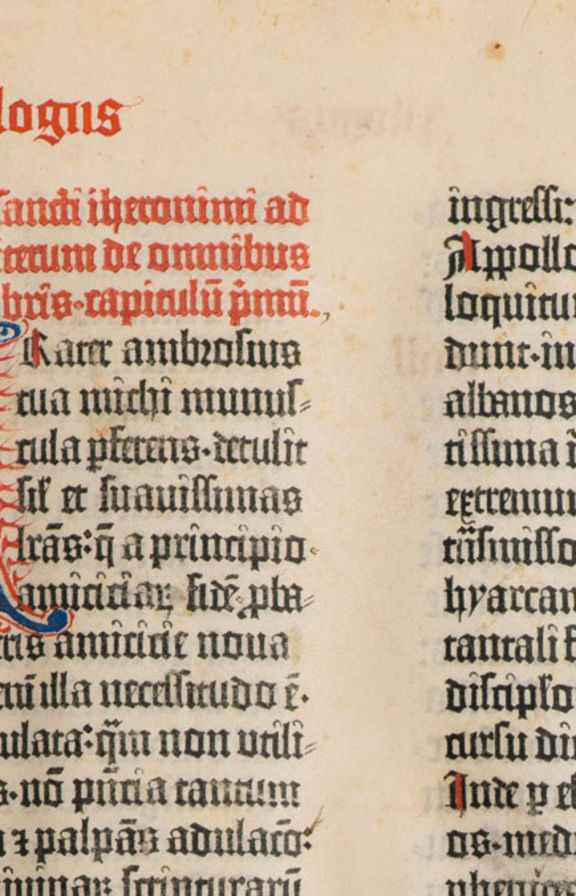 logus
sancti iheronimi ad
de omnibus
capitulū p̄mū.
Rater ambrosius
tua michi munus⸗
cula ꝑferens·detulit
sil̕ et suauissimas
lrās:q̄ a principio
amiciciaꝝ fidē ꝓba⸗
amicicie noua
illa necessitudo ē·
q̄m non utili⸗
nō p̄ncia tantum
ꝛ palpās adulacō:
scripturarū
ingressi:
Appollo
loquitu
dunt·in
albanos
tissima
extremum
trāsmisso
hyarcan
tantali
discipl̕o
cursu di
Inde ꝑ el
os·med